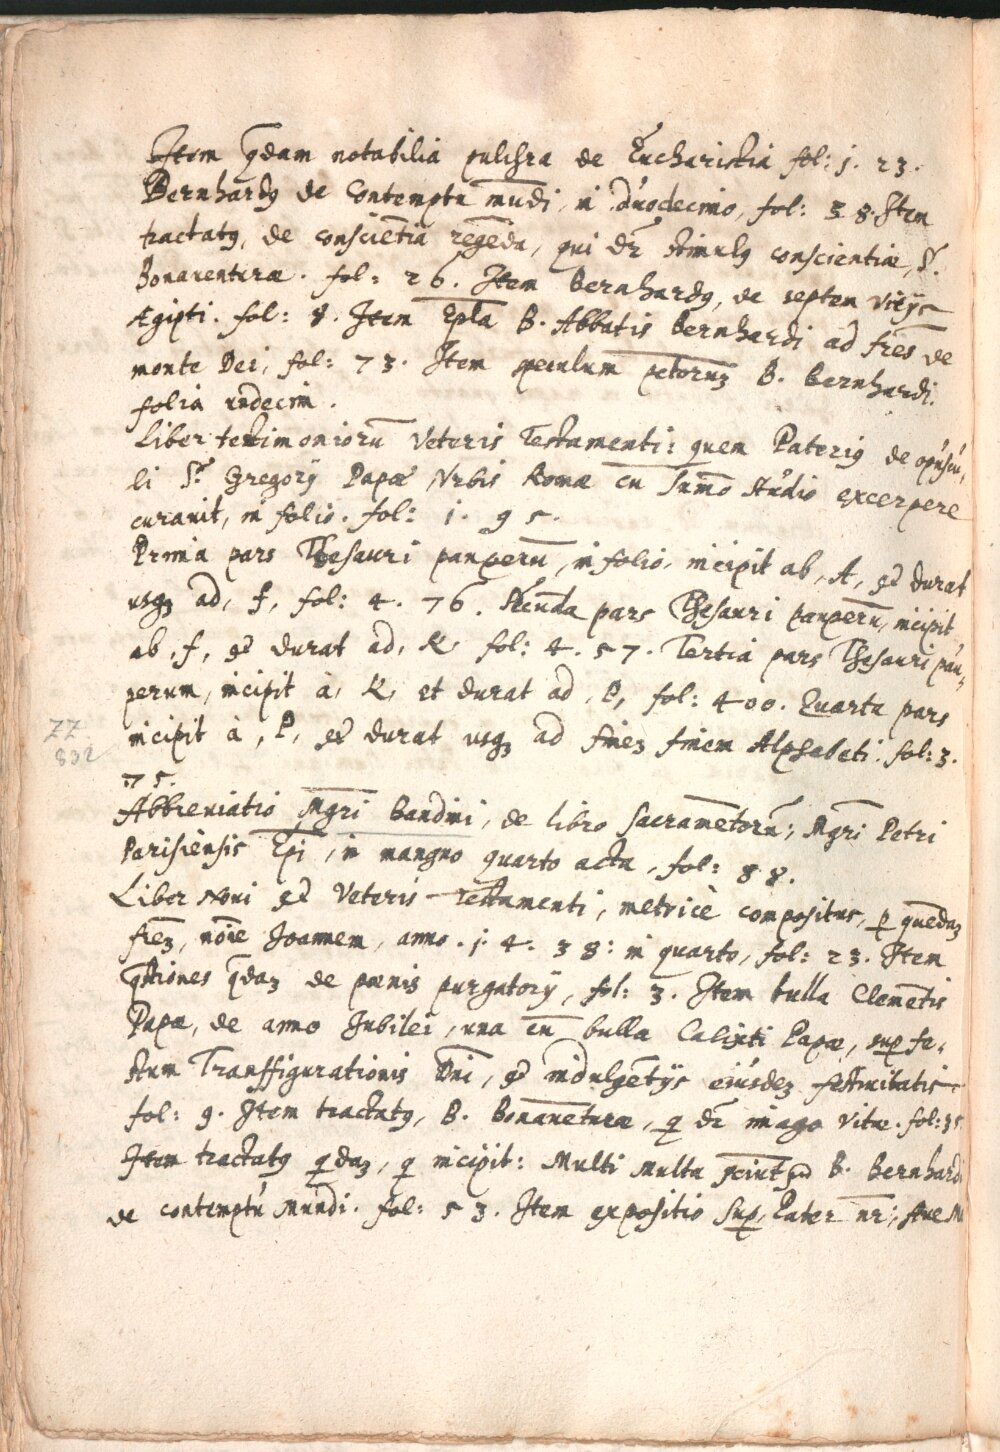 Item q̄dam notabilia pulchra de Eucharistia fol: j. 23.
Bernhardꝰ de Contemptu mūdi, in duodecimo, fol: 38. Item
tractatꝰ, de consciētia regēda, qui dr̄ stimulꝰ conscientiæ, S.
Bonaventuræ. fol: 26. Item Bernhardꝰ, de septem vitijs
Ægipti. fol: 8. Item Ep̄la B. Abbatis Bernhardi ad fr̄es de
monte Dei, fol: 73. Item speculum pc̄torum B. Bernhardi.
folia undecim.
Liber testimoniorū Veteris Testamenti: quem Pateriꝰ de opuscu,
li S.ti Gregorij Papæ Urbis Romæ cū summo studio excerpere
curavit, in folio. fol: j. 95.
Prima pars Thesauri pauperū, in folio, incipit ab, A, et durat
usqꝫ ad, f, fol: 4. 76. Secūda pars Thesauri pauperū, incipit
ab, f, et durat ad, K, fol: 4. 57. Tertia pars Thesauri pau,
perum, incipit à, K, et durat ad, P, fol: 400. Quarta pars
incipit à, P, et durat usqꝫ ad finez finem Alphabeti. fol: 3.
77.
832
75.
Abbreviatio Mgr̄i Bandini, de libro sacramētorū; Mgr̄i Petri
Parisiensis Ep̄i, in mangno quarto acta, fol: 88.
Liber Novi et Veteris Testamenti, metricè compositus, ꝑ quēdaꝫ
fr̄eꝫ, nōie Joannem, anno. j. 4. 38: in quarto, fol: 23. Item
q̄stiones q̄daꝫ de pœnis purgatorij, fol: 3. Item bulla Clemētis
Papæ, de anno Jubilei, una cū bulla Calixti Papæ, suꝑ fe,
stum Transfigurationis Dn̄i, et indulgētijs eiúsdeꝫ festivitatis
fol: 9. Item tractatꝰ, B. Bonavēturæ, q dr̄ imago vitæ. fol: 35
Item tractatꝰ qdaꝫ, q incipit: Multi multa sciūt B. Bernhardi
de contemptu Mundi. fol: 53. Item expositio suꝑ, Pater nr̄; Ave M